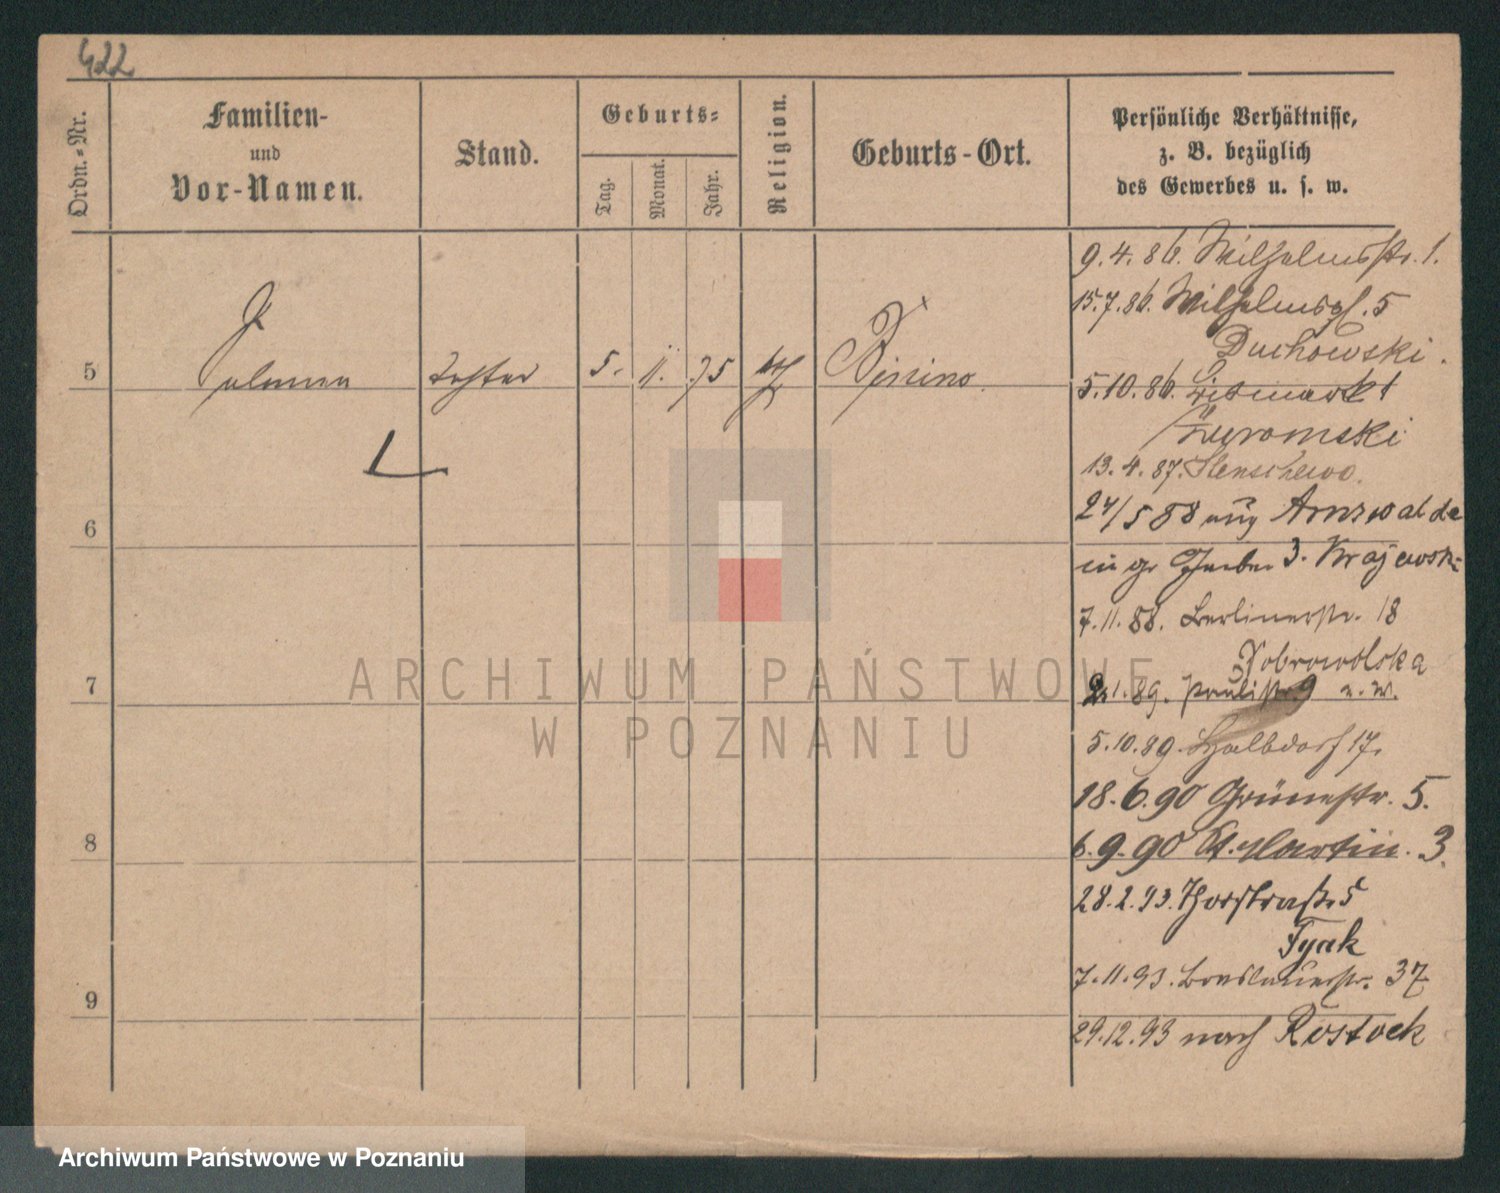 422
Ordn.-Nr.
Familien-
und
Vor-Namen.
Stand.
Geburts-
Tag.
Monat.
Jahr.
Religion.
Geburts-Ort.
Persönliche Verhältnisse,
z. B. bezüglich
des Gewerbes u. s. w.
9.4.86. Wilhelmsstr. 1.
15.7.86. Wilhelmspl. 5
Duchowski.
5 Tochter 5. 11. 75
5.10.86.
Żuromski
13.4.87. Stenschewo.
24/5 88 aus Arnswalde
6
in gr Gerber 3. Krajewski
7.11.88. Berlinerstr. 18
Dobrowolska
7
1.89. Paulistr. 9
5.10.89. Halbdorf 17.
18.6.90 Grünestr. 5.
8
6.9.90 St. Martin. 3.
28.2.93. Thorstraße 5
Tyak
7.11.93. Breslauerstr. 37
9
29.12.93 nach Rostock
ARCHIWUM PAŃSTWOWE
W POZNANIU
Archiwum Państwowe w Poznaniu